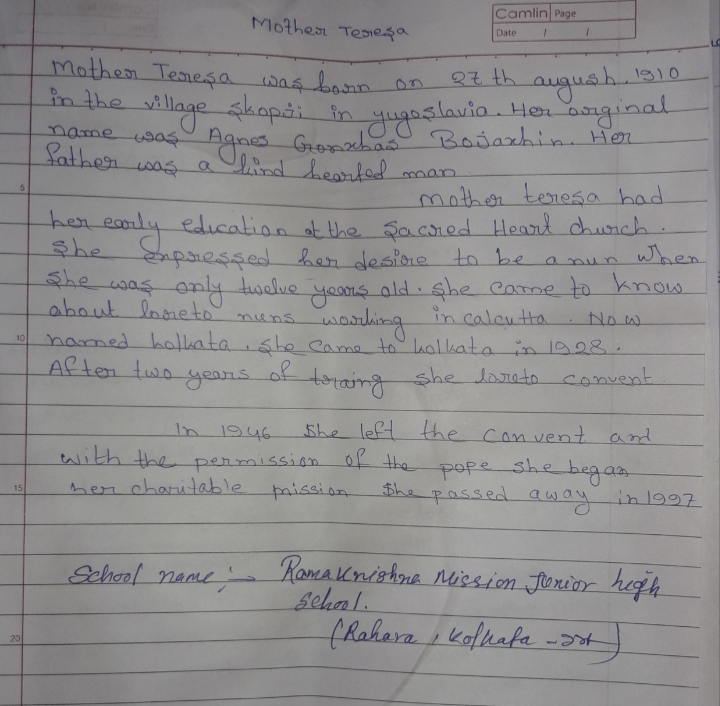 Mother Teresa
Camlin Page
Date / /
Mother Teresa was born on 27th augush. 1910
in the village Skopji in yugoslavia. Her orginal
name was Agnes Gronxhas Bojaxhin. Her
father was a kind hearted man
Mother teresa had
5
her early education at the Sacred Heart church.
She expressed her desire to be a nun when
she was only twelve years old. She came to know
about loreto nuns working in calcutta. Now
10
named kolkata. She came to kolkata in 1928.
After two years of traing she loreto convent
In 1946 she left the convent and
with the permission of the pope she began
15
her charitable mission She passed away in 1997
School name :- Ramakrishna Mission Junior high
School.
20
(Rahara, Kolkata -